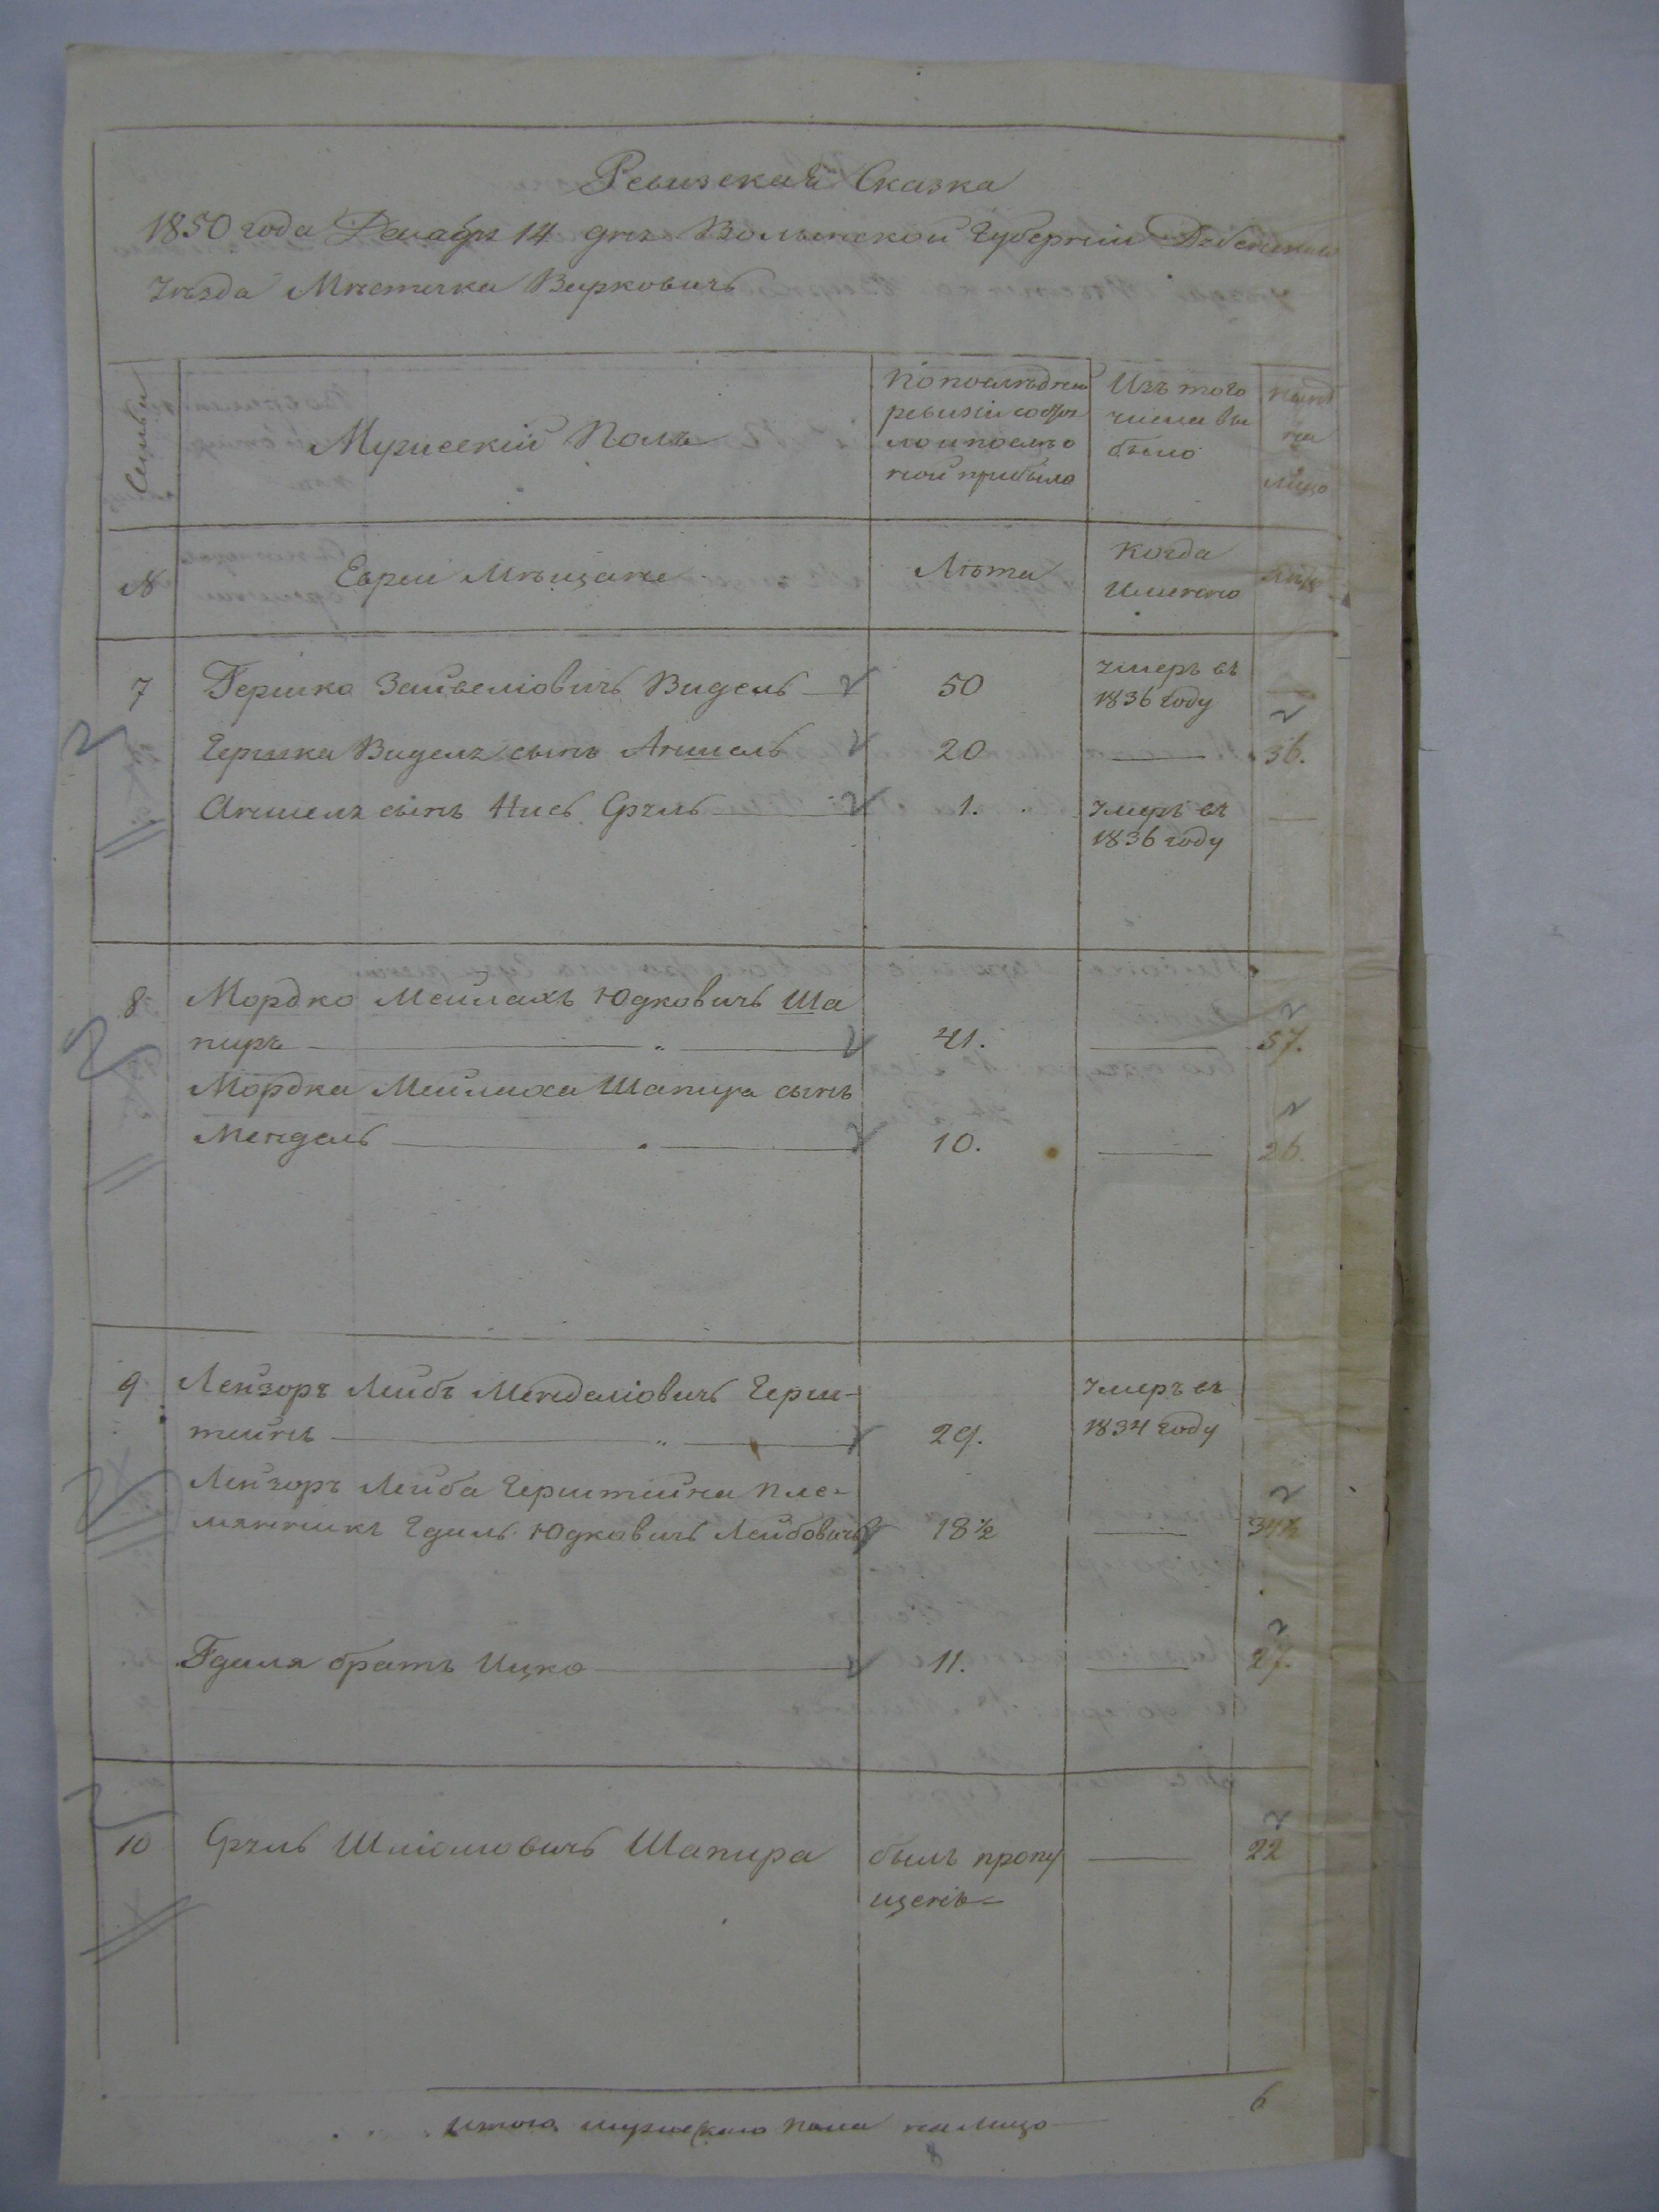 Ревизская Сказка
1850 года Декабря 14 дня Волынской Губернии Дубенскаго
Уѣзда Мѣстечка Верковичь
Семьи
Мужескій Полъ
По последней
ревизіи состоя
ло и послѣ о
ной прибыло
Изъ того
числа вы
было
Нынѣ
на
лицо
№
Евреи Мѣщане
Лѣта
Когда
Именно
Лѣта
7 Гершко Зайвеліовичь Видель 50 умеръ въ
1836 году
Гершка Виделя сынъ Аншель 20 — 36.
Аншеля сынъ Нись Сруль 1. умеръ въ —
1836 году
8 Мордко Мейлахъ Юдковичь Ша
пиръ — „ — 41. — 57.
Мордка Мейлиха Шапира сынъ
Мендель — 10. — 26.
9 Лейзоръ Лейбъ Менделіовичь Герш-
тейнъ — „ — 29. умеръ въ
1834 году
Лейзоръ Лейба Герштейна пле-
мянникъ Гдиль Юдковичь Лейбовичь 18½ — 34½
Гдиля братъ Ицко — 11. — 27.
10 Сруль Шліомовичь Шапира былъ пропу — 22
щенъ —
Итого мужескаго пола на лицо — 6
8